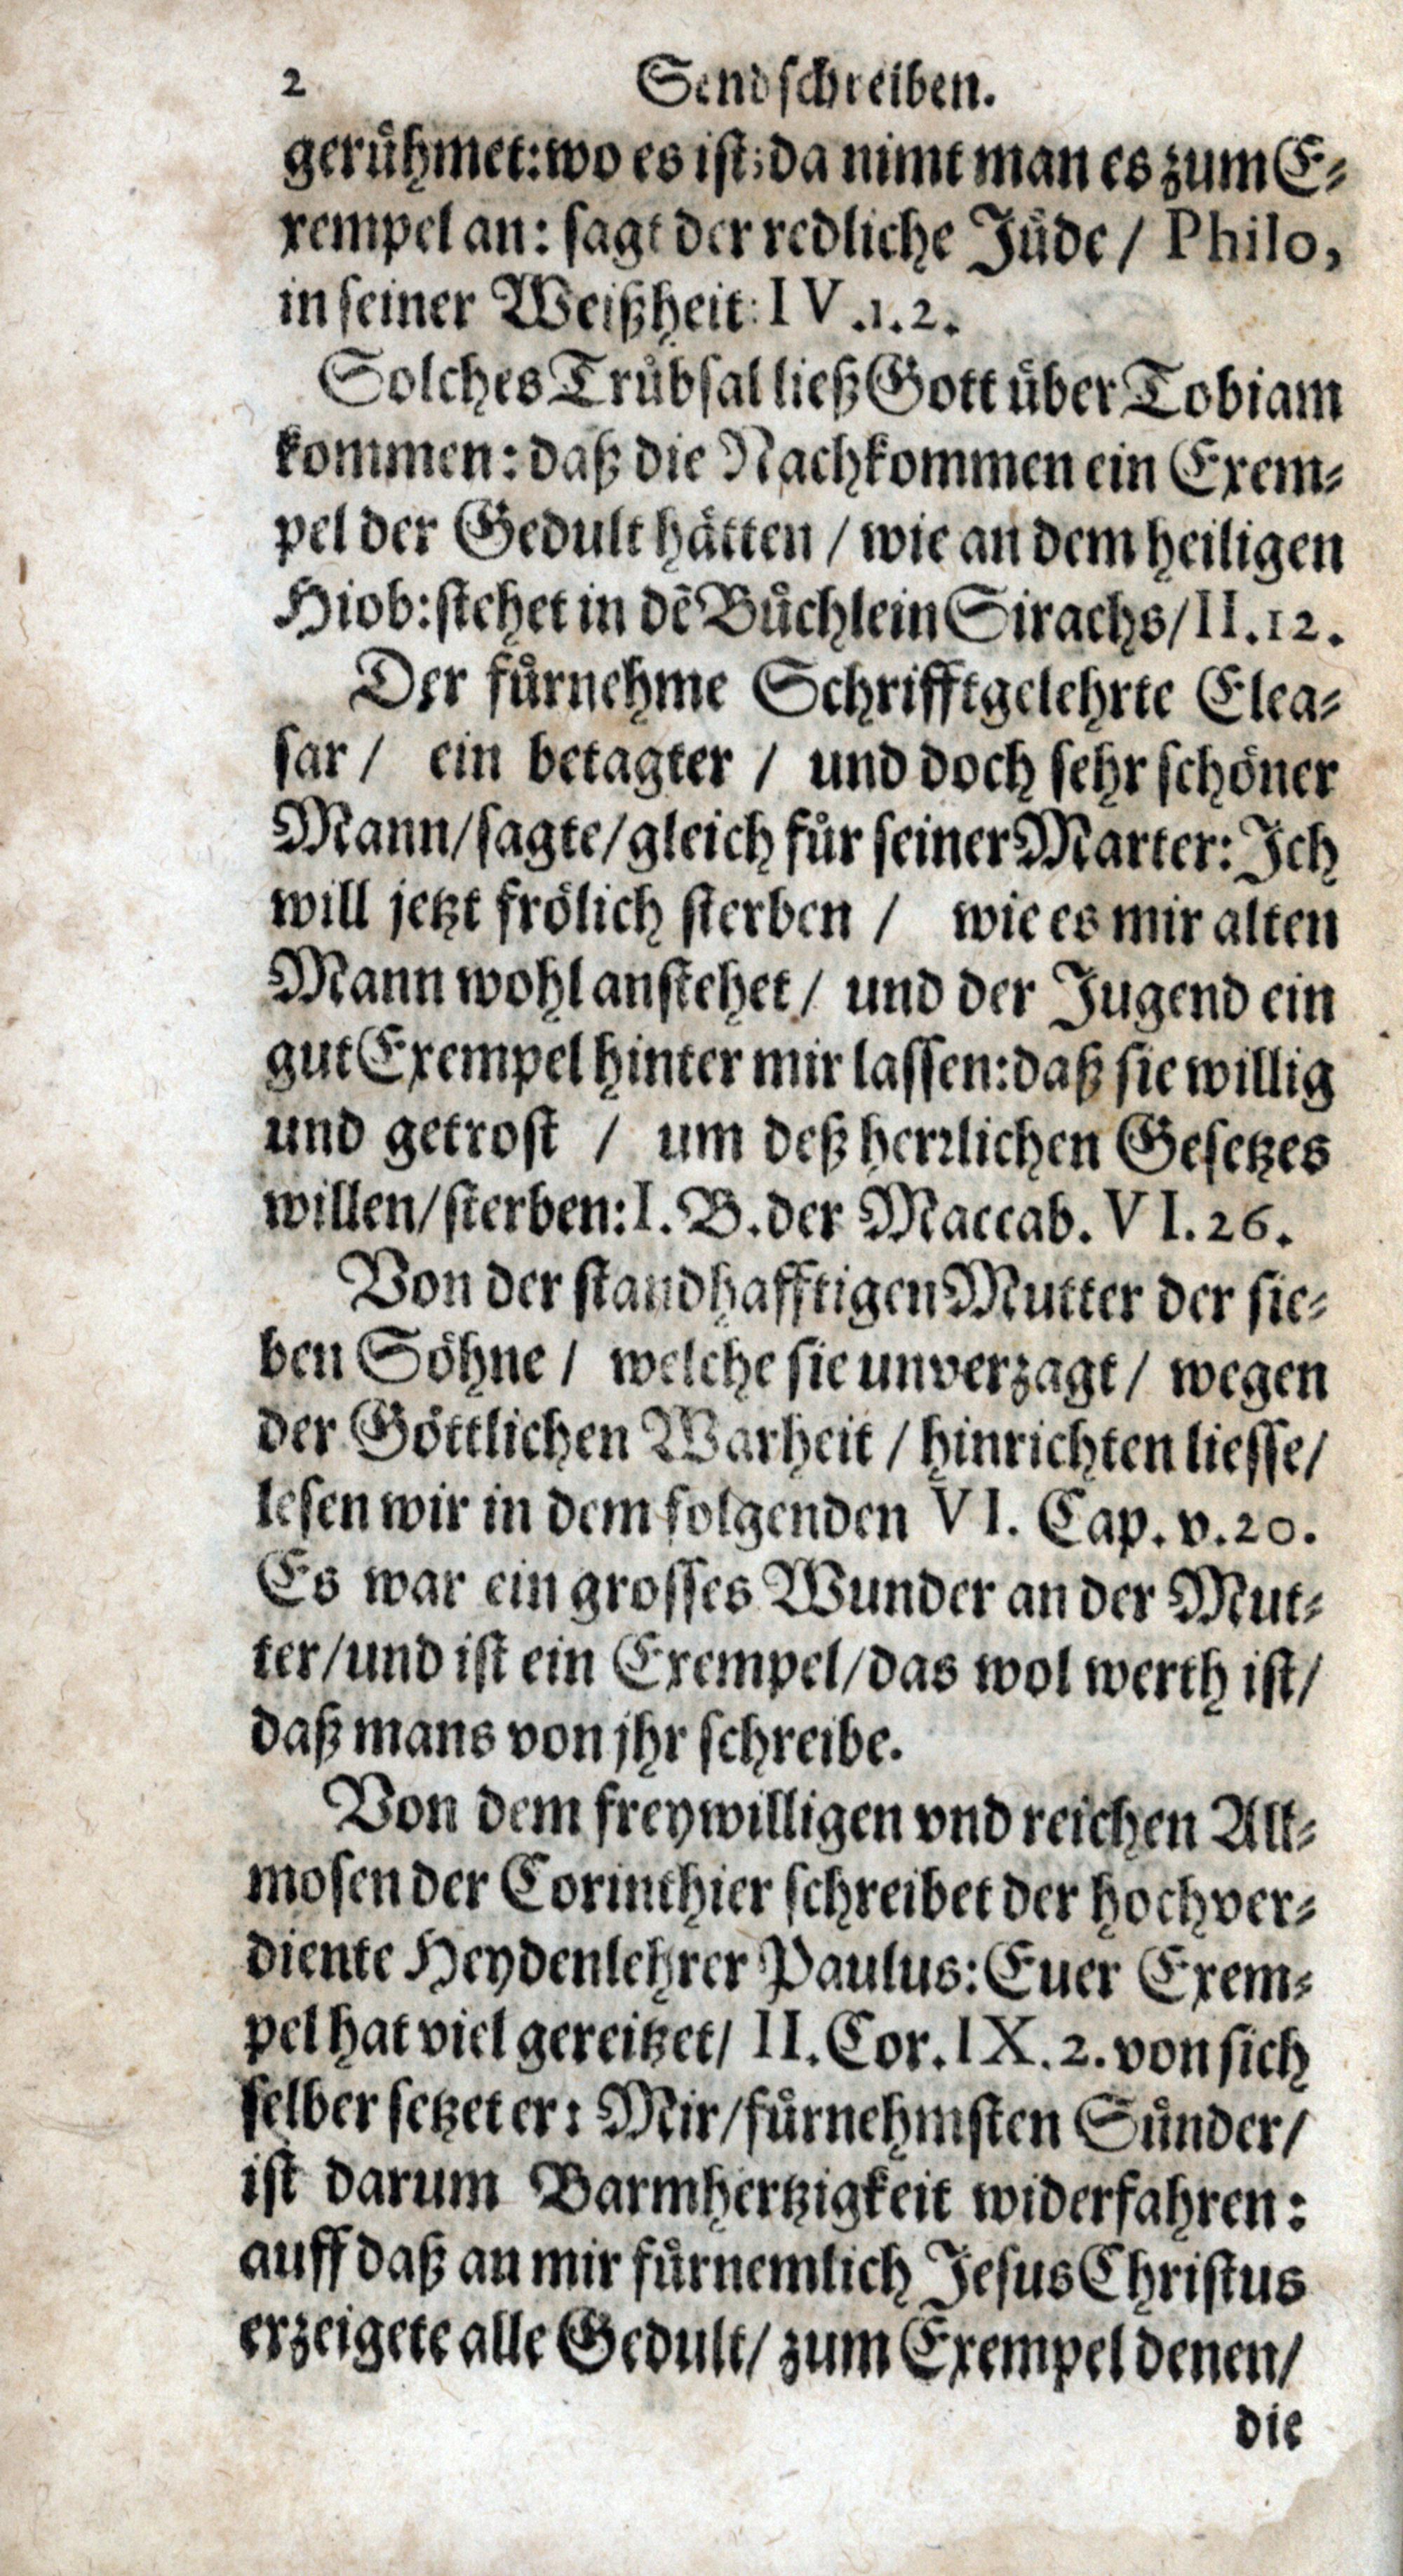 2 Sendschreiben.
geruͤhmet: wo es ist; da nimt man es zum E⸗
xempel an: sagt der redliche Juͤde / Philo,
in seiner Weißheit: IV.1.2.
Solches Truͤbsal ließ Gott uͤber Tobiam
kommen: daß die Nachkommen ein Exem⸗
pel der Gedult haͤtten / wie an dem heiligen
Hiob: stehet in dẽ Buͤchlein Sirachs / II.12.
Der fuͤrnehme Schrifftgelehrte Elea⸗
sar / ein betagter / und doch sehr schoͤner
Mann / sagte / gleich fuͤr seiner Marter: Ich
will jetzt froͤlich sterben / wie es mir alten
Mann wohl anstehet / und der Jugend ein
gut Exempel hinter mir lassen: daß sie willig
und getrost / um deß herꝛlichen Gesetzes
willen / sterben: I. B. der Maccab. VI.26.
Von der standhafftigen Mutter der sie⸗
ben Soͤhne / welche sie unverzagt / wegen
der Goͤttlichen Warheit / hinrichten liesse /
lesen wir in dem folgenden VI. Cap. v.20.
Es war ein grosses Wunder an der Mut⸗
ter / und ist ein Exempel / das wol werth ist /
daß mans von jhr schreibe.
Von dem freywilligen vnd reichen All⸗
mosen der Corinthier schreibet der hochver⸗
diente Heydenlehrer Paulus: Euer Exem⸗
pel hat viel gereitzet / II. Cor. IX.2. von sich
selber setzet er: Mir / fuͤrnehmsten Suͤnder /
ist darum Barmhertzigkeit widerfahren:
auff daß an mir fuͤrnemlich Jesus Christus
erzeigete alle Gedult / zum Exempel denen /
die